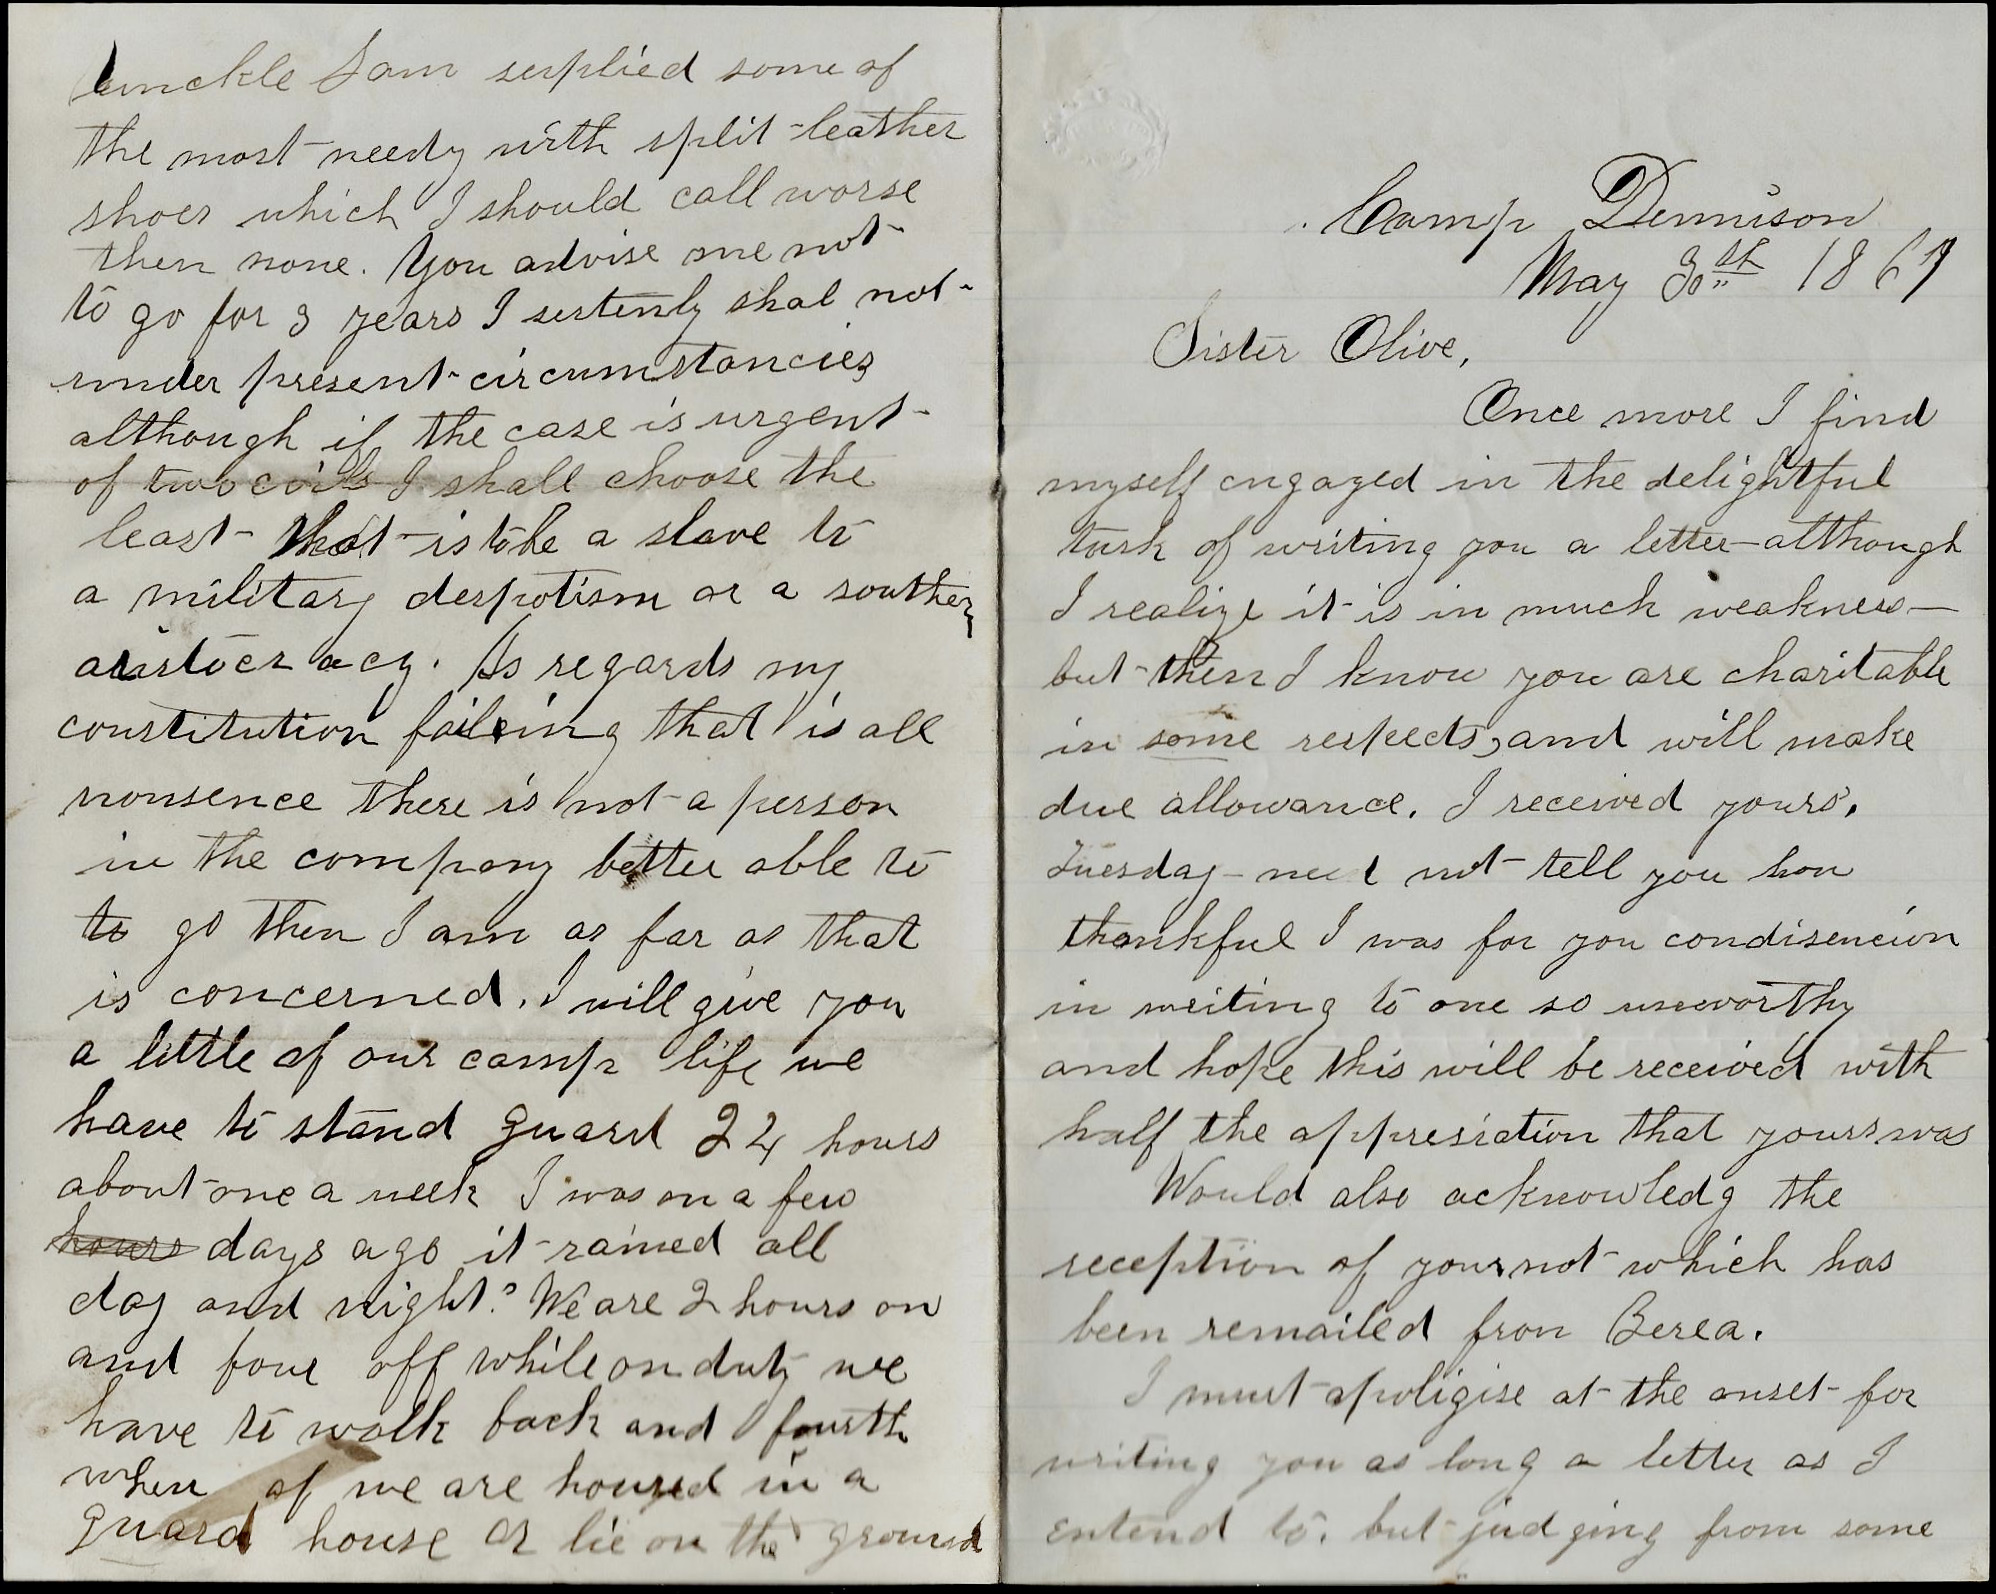 Camp Dennison
May 30th 1861
Sister Olive,
Once more I find
myself engaged in the delightful
task of writing you a letter although
I realize it is in much weakness—
but then I know you are charitable
in some respects, and will make
due allowance. I received yours.
Tuesday need not tell you how
thankful I was for you condisencion
in writing to one so unworthy
and hope this will be received with
half the appresiation that yours was
Would also acknowledg the
reception of your not which has
been remailed fron Berea.
I must apoligise at the onset for
writing you as long a letter as I
entend to. but judging from some
Uunckle Sam suplied some of
the most needy with split-leather
shoes which I should call worse
then none. You advise me not
to go for 3 years I sertenly shal not
under present circumstancies
although if the case is urgent
of two evils I shall choose the
least that is to be a slave to
a military despotism or a southern
aristocracy. As regards my
constitution faileing that is all
nonsence there is not a person
in the company better able to
to go then I am as far as that
is concerned. I will give you
a little of our camp life we
have to stand guard 24 hours
about one a week I was on a few
hours days ago it rained all
day and night. We are 2 hours on
and four off while on duty we
have to walk back and fourth
when of we are housed in a
guard house or lie on the ground